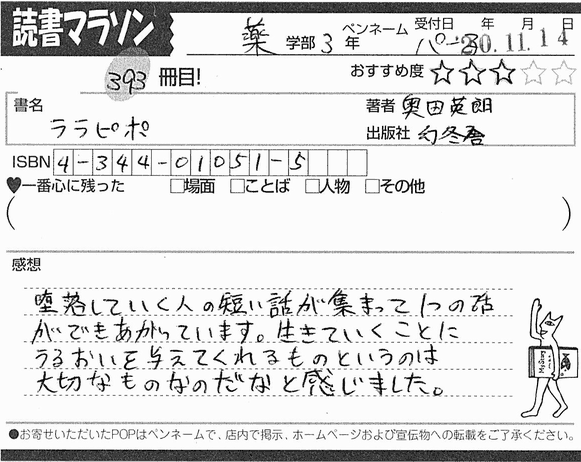 読書マラソン
薬 学部 3 年 ペンネーム パーる 受付日 年 月 日
'20.11.14
393 冊目!
おすすめ度 ★★★☆☆
書名
ララピポ
著者 奥田英朗
出版社 幻冬舎
ISBN 4-344-01051-5
♥一番心に残った □場面 □ことば □人物 □その他
( )
感想
堕落していく人の短い話が集まって1つの話
ができあがっています。生きていくことに
うるおいを与えてくれるものというのは
大切なものなのだなと感じました。
●お寄せいただいたPOPはペンネームで、店内で掲示、ホームページおよび宣伝物への転載をご了承ください。